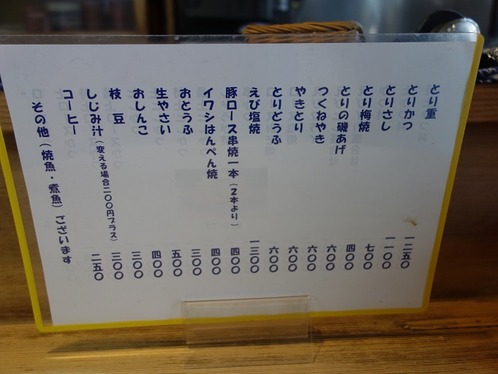 とり重 一二五〇
とりかつ 一一〇〇
とりさし 七〇〇
とり梅焼 四〇〇
とりの磯あげ 六〇〇
つくねやき 六〇〇
やきとり 六〇〇
とりどうふ 六〇〇
えび塩焼 一三〇〇
豚ロース串焼一本(2本より) 四〇〇
イワシはんぺん焼 四〇〇
おとうふ 三〇〇
生やさい 五〇〇
おしんこ 四〇〇
枝 豆 三〇〇
しじみ汁(変える場合二〇〇円プラス) 三〇〇
コーヒー 二五〇
その他(焼魚・煮魚)ございます